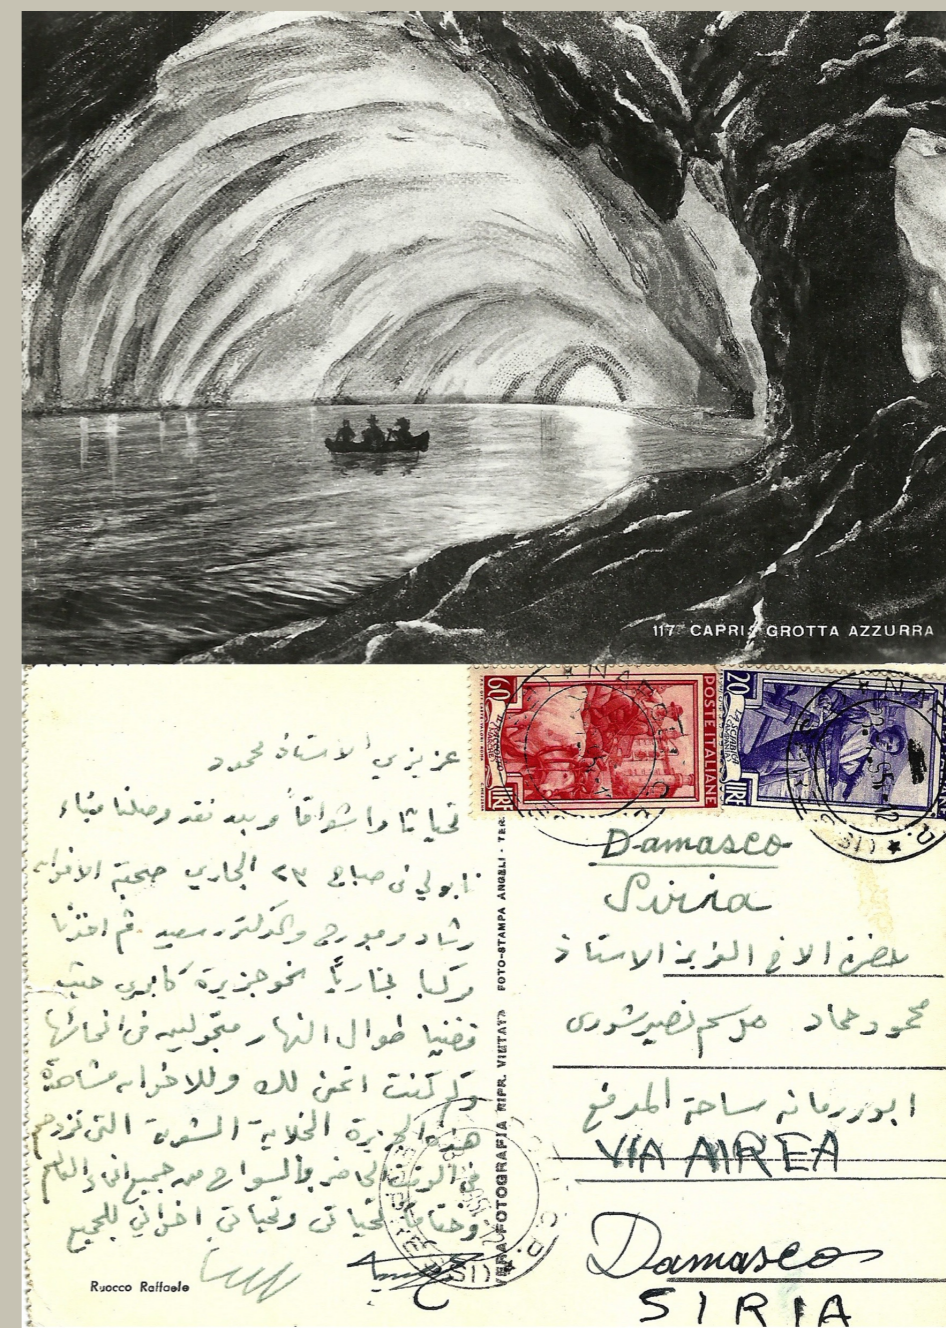 117 CAPRI - GROTTA AZZURRA
عزيزي الاستاذ محمود
تحياتا واشواقاً وبعد فقد وصلنا ميناء
نابولي في صباح ٢٣ الجاري صحبة الاخوان
رشاد و والدكتور سعيد ثم اخذنا
مركبا بخارياً نحو جزيرة كابري حيث
قضينا طوال النهار متجولين في انحائها
وكم كنت اتمنى لك وللاخوان مشاهدة
هذه الجزيرة الخلابة التي تزدحم
في الوقت الحاضر بالسواح من جميع انحاء العالم
وختاماً تحياتي وتحياتي اخواني للجميع
Ruocco Raffaele
VERA FOTOGRAFIA RIPR. VIETATA FOTO-STAMPA ANGELI - TER
60
LIRE
POSTE ITALIANE
20
LIRE
Damasco
Siria
حضرة الاخ العزيز الاستاذ
محمود حماد
ابورمانه ساحة المدفع
VIA AIREA
Damasco
SIRIA